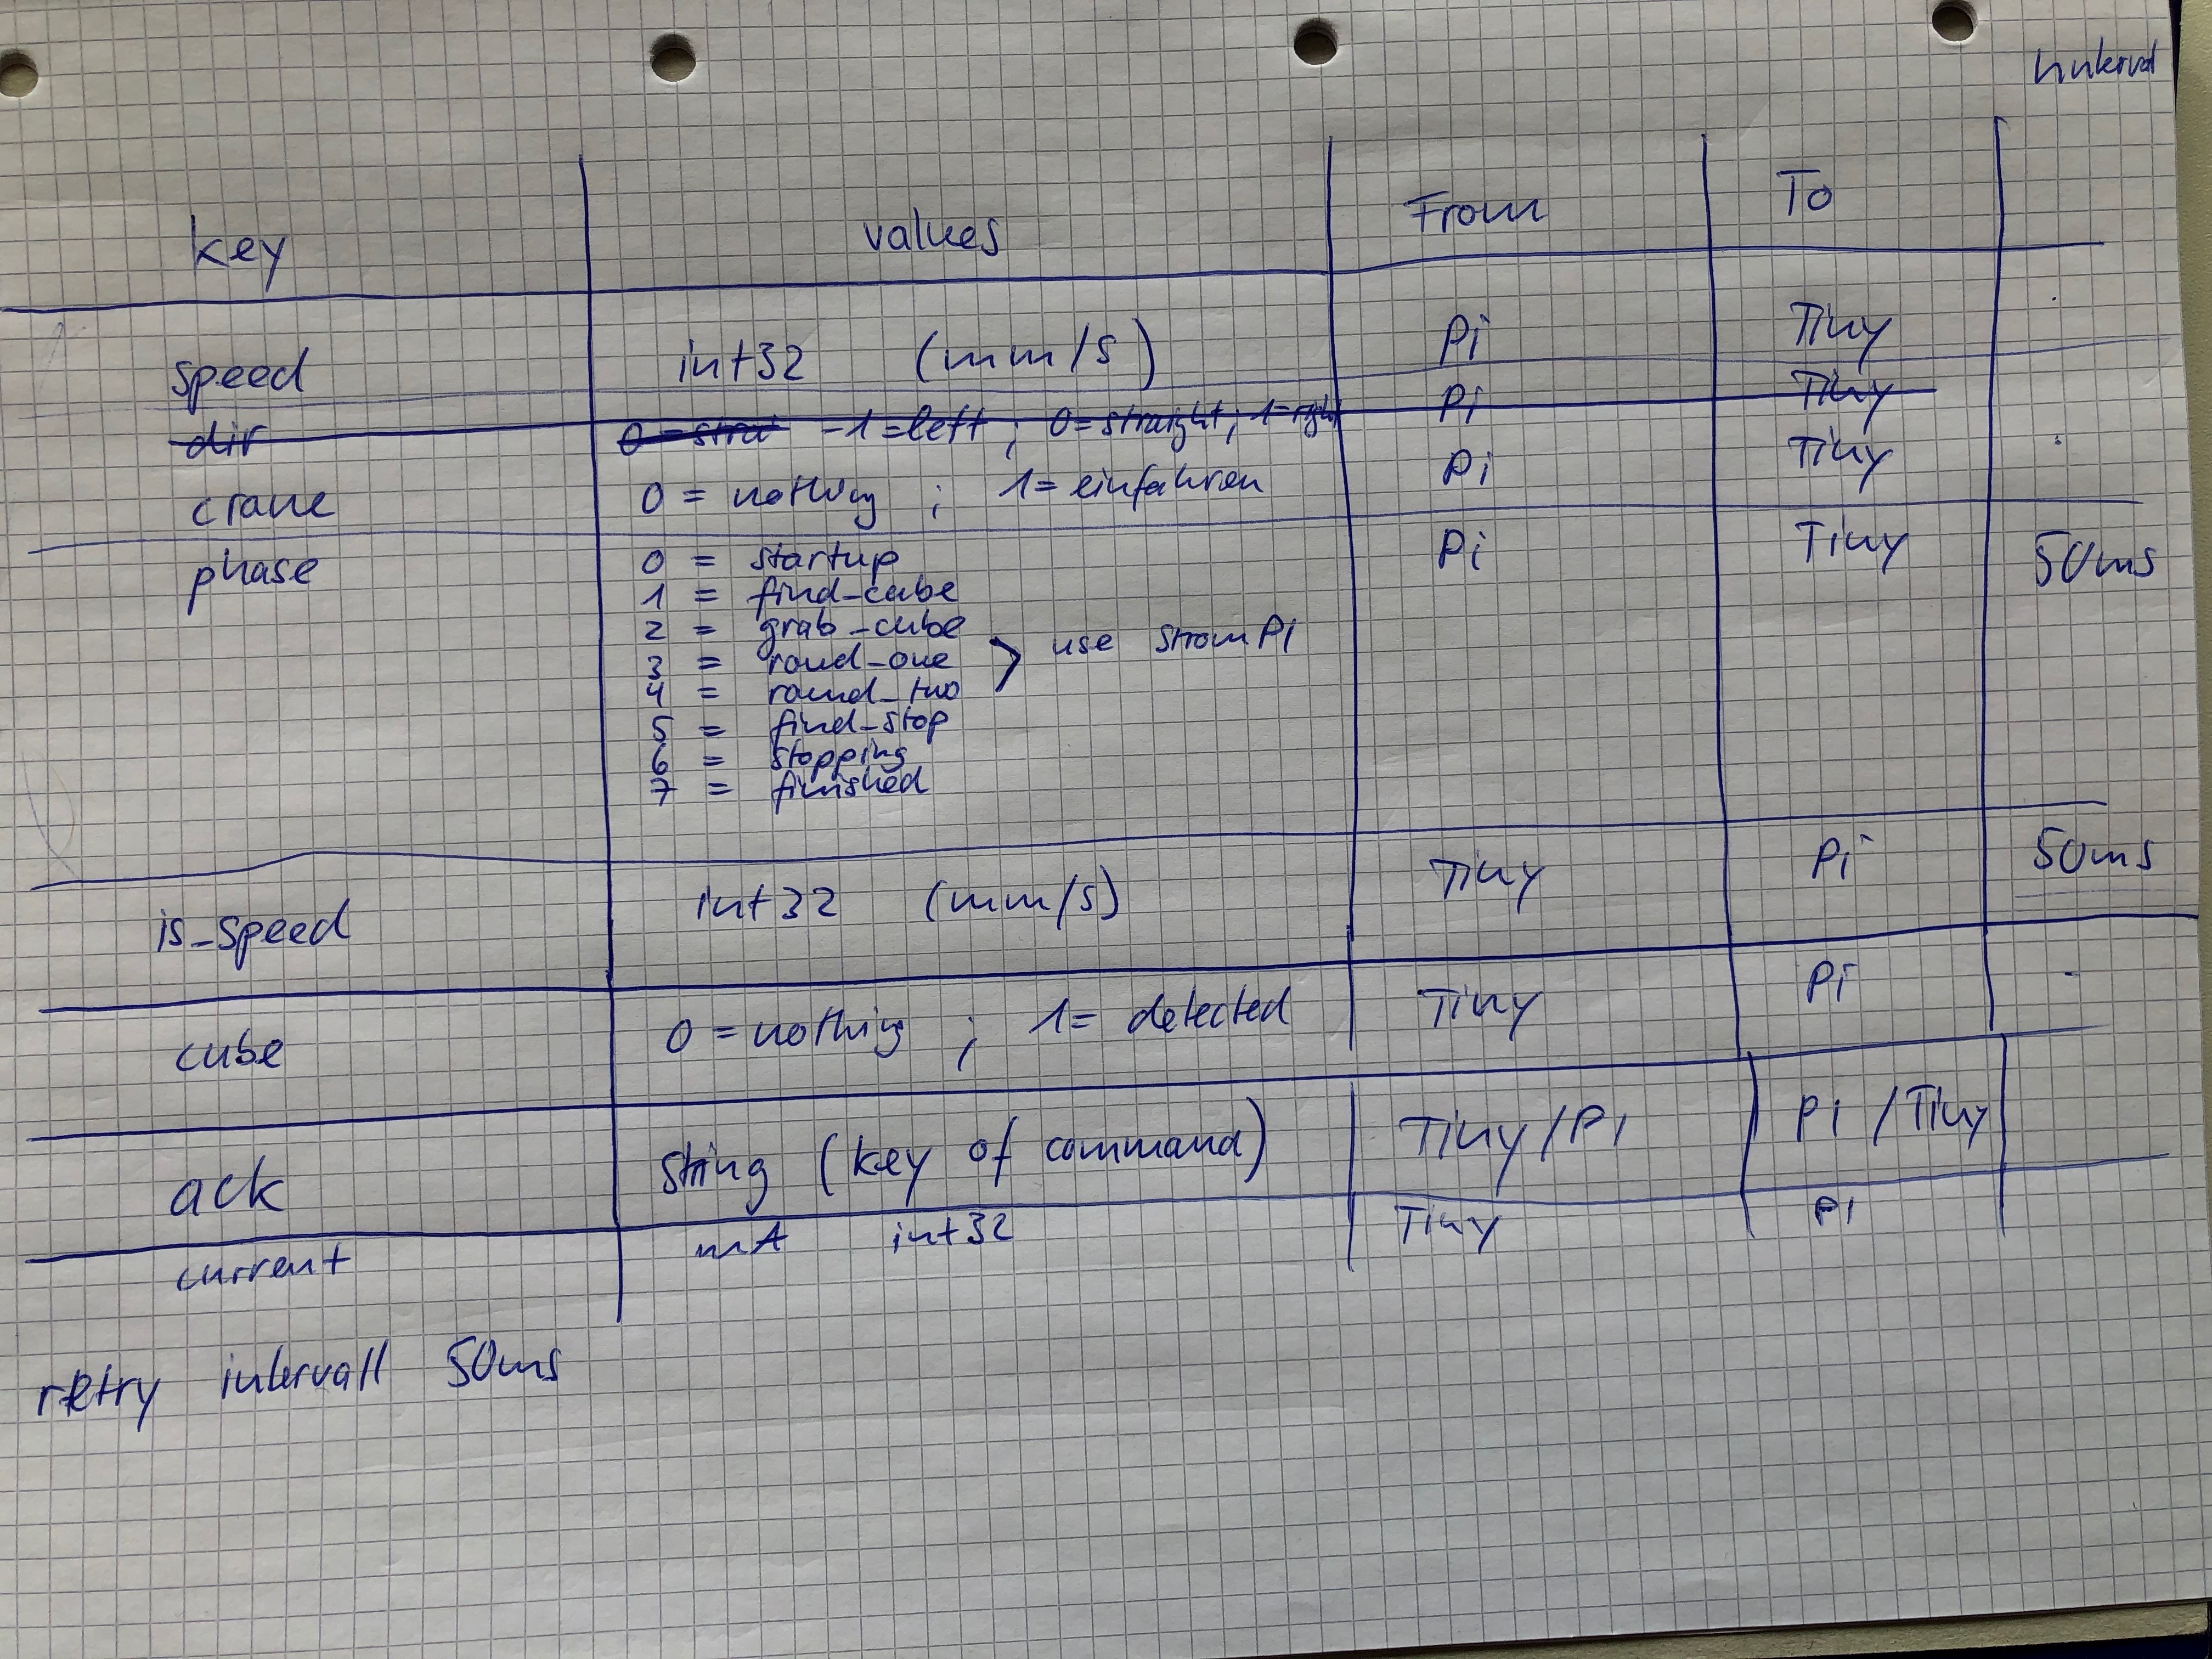 key values From To
speed int32 (mm/s) Pi Tiny
dir -1=left ; 0=straight ; 1=right Pi Tiny
crane 0 = nothing ; 1= einfahren Pi Tiny
phase 0 = startup Pi Tiny 50ms
1 = find_cube
2 = grab_cube
3 = round_one > use StromPi
4 = round_two
5 = find_stop
6 = stopping
7 = finished
is_speed int32 (mm/s) Tiny Pi 50ms
cube 0 = nothing ; 1= detected Tiny Pi -
ack string (key of command) Tiny/Pi Pi/Tiny
current mA int32 Tiny Pi
retry intervall 50ms